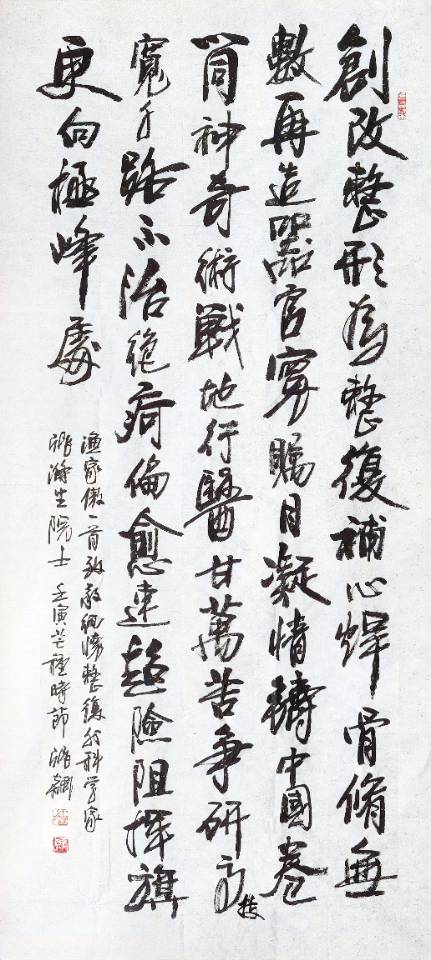 創改整形為整復補心焊骨脩無
數再造器官寰矚目凝情鑄中國卷
筒神奇術戰地行醫甘萬苦爭研高技
寬千路不治絕疴偏愈速越險阻揮旗
更向極峰處
漁家傲一首致敬整復外科学家
張滌生院士壬寅芒種時節張